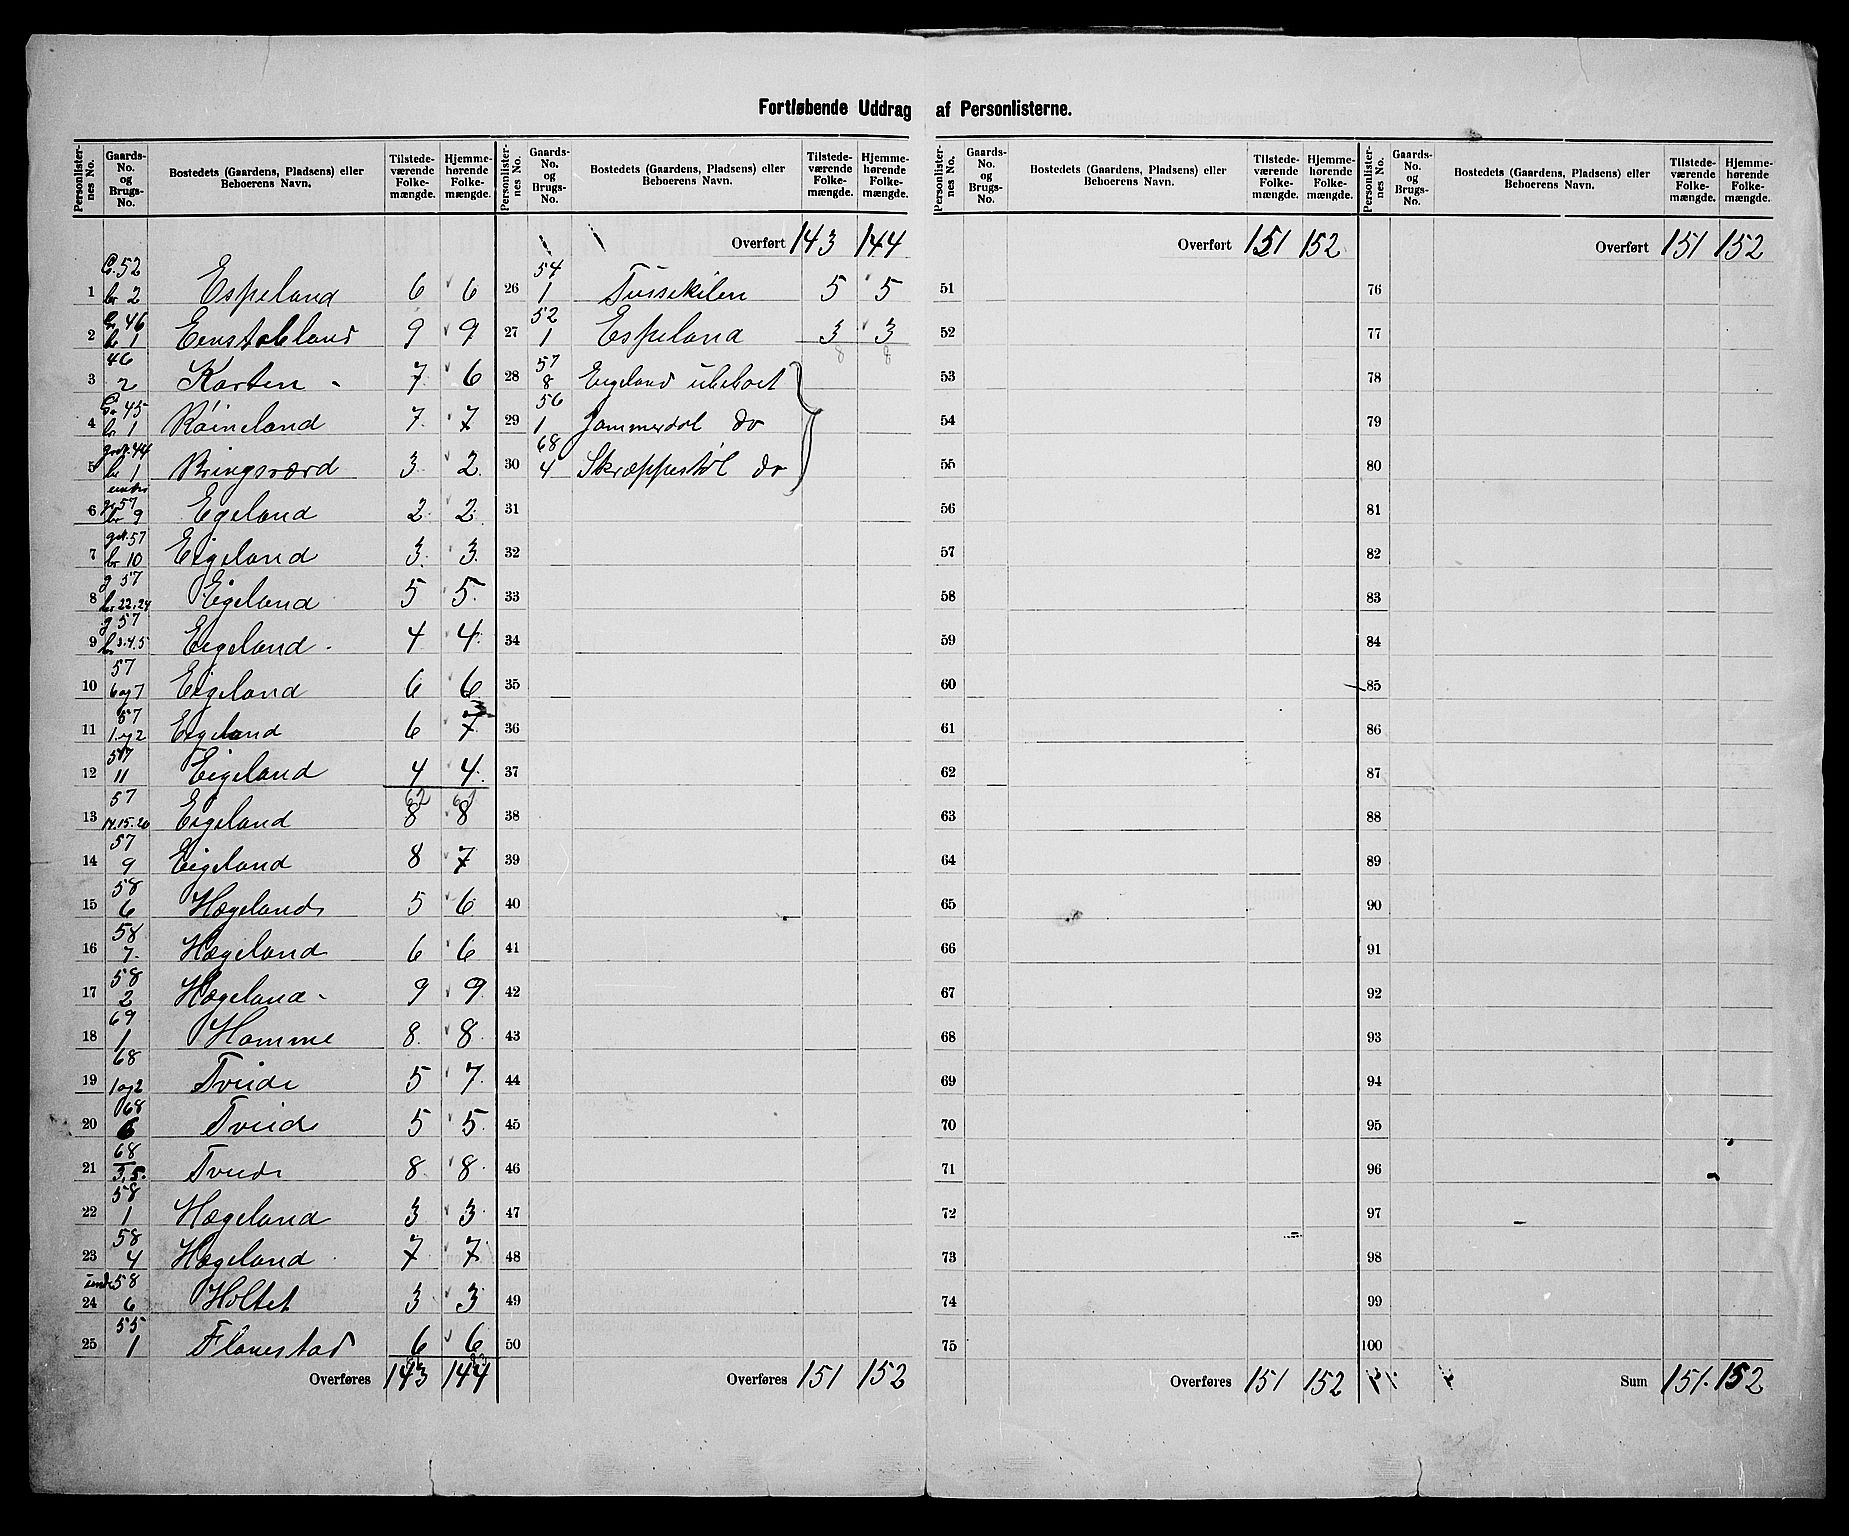 Fortløbende Uddrag af Personlisterne.
Personlisternes No. Gaards-No. og Brugs-No. Bostedets (Gaardens, Pladsens) eller Beboerens Navn. Tilstedeværende Folkemængde. Hjemmehørende Folkemængde.
1 G. 52 br 2 Espeland 6 6
2 Gr 46 br 1 Eenstabland 9 9
3 46 2 Karten - 7 6
4 Gr 45 br 1 Røineland 7 7
5 grdr. 44 br 1 Bringsværd 3 2
6 under gr 57 br 9 Egeland 2 2
7 grd. 57 br 10 Eigeland 3 3
8 g 57 br 22.24 Eigeland 5 5
9 g 57 br 3.4.5 Eigeland 4 4
10 57 6 og 7 Eigeland 6 6
11 57 1 og 2 Eigeland 6 7
12 57 11 Eigeland 4 4
62 61
13 57 14.15.20 Eigeland 8 8
14 57 9 Eigeland 8 7
15 58 6 Hægeland 5 6
16 58 7. Hægeland 6 6
17 58 2 Hægeland - 9 9
18 69 1 Homme 8 8
19 68 1 og 2 Tveide 5 7
20 68 6 Tveid 5 5
21 68 3, 5. Tveide 8 8
22 58 1 Hægeland 3 3
23 58 4 Hægeland 7 7
24 under 58 6 Holtet 3 3
25 55 1 Flanestad 6 6
Overføres 143 144
Personlisternes No. Gaards-No. og Brugs-No. Bostedets (Gaardens, Pladsens) eller Beboerens Navn. Tilstedeværende Folkemængde. Hjemmehørende Folkemængde.
Overført 143 144
26 54 1 Tussekilen 5 5
27 52 1 Espeland 3 3
8 8
28 57 8 Eigeland ubeboet
29 56 1 Jammerdal do
30 68 4 Skræppestøl do
31
32
33
34
35
36
37
38
39
40
41
42
43
44
45
46
47
48
49
50
Overføres 151 152
Personlisternes No. Gaards-No. og Brugs-No. Bostedets (Gaardens, Pladsens) eller Beboerens Navn. Tilstedeværende Folkemængde. Hjemmehørende Folkemængde.
Overført 151 152
51
52
53
54
55
56
57
58
59
60
61
62
63
64
65
66
67
68
69
70
71
72
73
74
75
Overføres 151 152
Personlisternes No. Gaards-No. og Brugs-No. Bostedets (Gaardens, Pladsens) eller Beboerens Navn. Tilstedeværende Folkemængde. Hjemmehørende Folkemængde.
Overført 151 152
76
77
78
79
80
81
82
83
84
85
86
87
88
89
90
91
92
93
94
95
96
97
98
99
100
Sum 151. 152